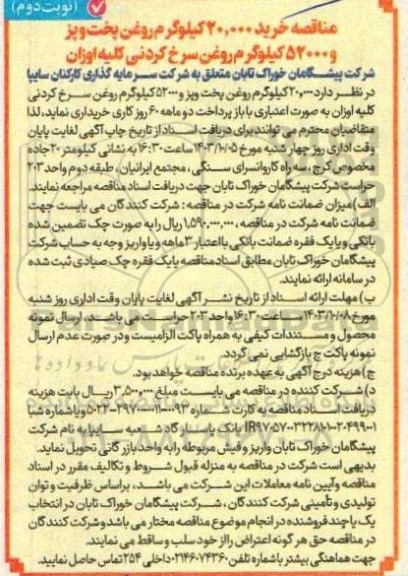 (نوبت دوم)
مناقصه خرید ۲۰,۰۰۰ کیلوگرم روغن پخت و پز
و ۵۲۰۰۰ کیلوگرم روغن سرخ کردنی کلیه اوزان
شرکت پیشگامان خوراک تابان متعلق به شرکت سرمایه گذاری کارکنان سایپا
در نظر دارد ۲۰,۰۰۰ کیلوگرم روغن پخت وپز و ۵۲۰۰۰ کیلوگرم روغن سرخ کردنی
کلیه اوزان به صورت اعتباری با باز پرداخت دو ماهه ۶۰ روز کاری خریداری نماید، لذا
متقاضیان محترم می توانند برای دریافت اسناد از تاریخ چاپ آگهی لغایت پایان
وقت اداری روز چهار شنبه مورخ ۱۴۰۳/۱۰/۰۵ ساعت ۱۶:۳۰ به نشانی کیلومتر ۲۰ جاده
مخصوص کرج ، سه راه کاروانسرای سنگی ، مجتمع ایرانیان ، طبقه دوم واحد ۲۰۳
حراست شرکت پیشگامان خوراک تابان جهت دریافت اسناد مناقصه مراجعه نمایند.
الف) میزان ضمانت نامه شرکت در مناقصه : شرکت کنندگان می بایست جهت
ضمانت نامه شرکت در مناقصه ، ۱,۵۹۰,۰۰۰,۰۰۰ ریال را به صورت چک تضمین شده
بانکی و یا یک فقره ضمانت بانکی با اعتبار ۳ ماهه و یا واریز وجه به حساب شرکت
پیشگامان خوراک تابان مطابق اسناد مناقصه یا یک فقره چک صیادی ثبت شده
در سامانه ارائه نمایند.
ب) مهلت ارائه اسناد از تاریخ نشر آگهی لغایت پایان وقت اداری روز شنبه
مورخ ۱۴۰۳/۱۰/۰۸ ساعت ۱۶:۳۰ واحد ۲۰۳ حراست می باشد. ارسال نمونه
محصول و مستندات کیفی به همراه پاکت الزامیست و در صورت عدم ارسال
نمونه پاکت ج بازگشایی نمی گردد.
ج) هزینه درج آگهی به عهده برنده مناقصه خواهد بود.
د) شرکت کننده در مناقصه می بایست مبلغ ۳,۵۰۰,۰۰۰ ریال بابت هزینه
دریافت اسناد مناقصه به کارت شماره
بانک پاسارگاد شعبه سایپا به نام شرکت
پیشگامان خوراک تابان واریز و فیش مربوطه را به واحد بازرگانی تحویل نماید.
بدیهی است شرکت در مناقصه به منزله قبول شروط و تکالیف مقرر در اسناد
مناقصه و آیین نامه معاملات این شرکت می باشد، براساس ظرفیت و توان
تولیدی و تأمینی شرکت کنندگان ، شرکت پیشگامان خوراک تابان در انتخاب
یک یا چند فروشنده در انجام موضوع مناقصه مختار می باشد و شرکت کنندگان
در مناقصه حق هر گونه اعتراض را از خود سلب و ساقط می نمایند.
جهت هماهنگی بیشتر با شماره تلفن ۰۲۱۴۶۰۷۴۳۶۰ داخلی ۲۵۴ تماس حاصل نمایید.